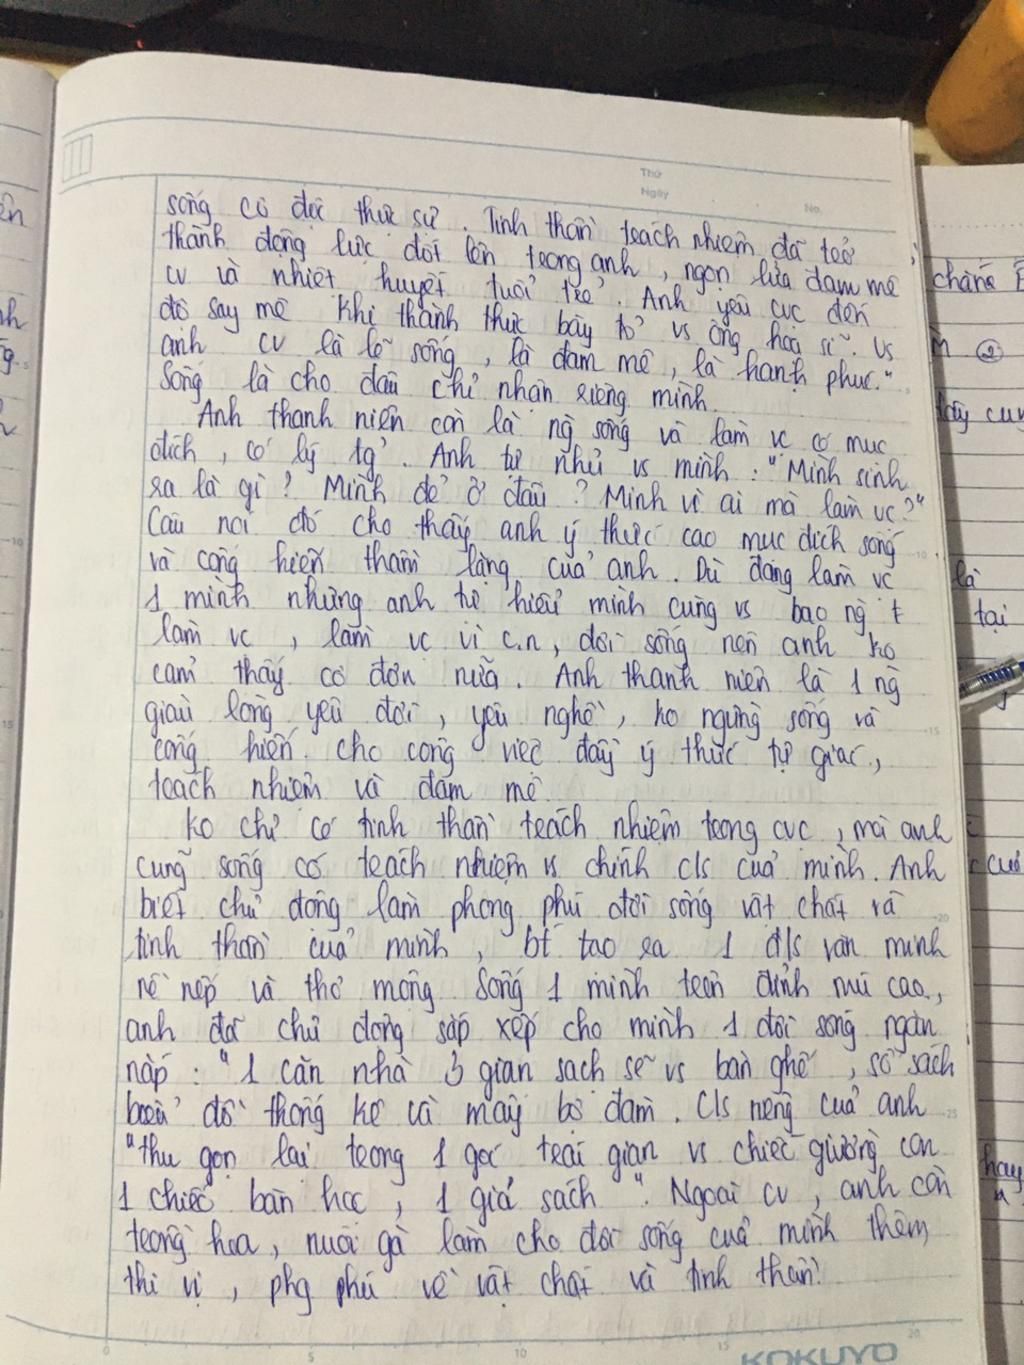 Thứ
Ngày
No.
sống cô độc thực sự. Tinh thần trách nhiệm đã trở
thành động lực đốt lên trong anh, ngọn lửa đam mê
cv và nhiệt huyết tuổi trẻ. Anh yêu cvc đến
độ say mê khi thành thực bày tỏ vs ông họa sĩ. Vs
anh cv là lẽ sống, là đam mê, là hạnh phúc."
Sống là cho đâu chỉ nhận riêng mình
Anh thanh niên còn là ng sống và làm vc có mục
đích, có lý tg. Anh tự nhủ vs mình: "Mình sinh
ra là gì? Mình đẻ ở đâu? Mình vì ai mà làm vc?"
Câu nói đó cho thấy anh ý thức cao mục đích sống
và cống hiến thầm lặng của anh. Dù đang làm vc
1 mình nhưng anh tự hiểu mình cùng vs bao ng t
làm vc, làm vc vì c.n, đời sống nên anh ko
cảm thấy cô đơn nữa. Anh thanh niên là 1 ng
giàu lòng yêu đời, yêu nghề, ko ngừng sống và
cống hiến cho công việc đầy ý thức tự giác,
trách nhiệm và đam mê
Ko chỉ có tinh thần trách nhiệm trong cvc, mà anh
cũng sống có trách nhiệm vs chính c/s của mình. Anh
biết chủ động làm phong phú đời sống vật chất và
tinh thần của mình, bt tạo ra 1 đ/s văn minh
nề nếp và thơ mộng Sống 1 mình trên đỉnh núi cao,
anh đã chủ động sắp xếp cho mình 1 đời sống ngăn
nắp: "1 căn nhà 3 gian sạch sẽ vs bàn ghế, sổ sách
biểu đồ thống kê và máy bộ đàm. C/s riêng của anh
"thu gọn lại trong 1 góc trái gian vs chiếc giường con
1 chiếc bàn học, 1 giá sách". Ngoài cv, anh còn
trồng hoa, nuôi gà làm cho đời sống của mình thêm
thi vị, phg phú về vật chất và tinh thần.
KOKUYO